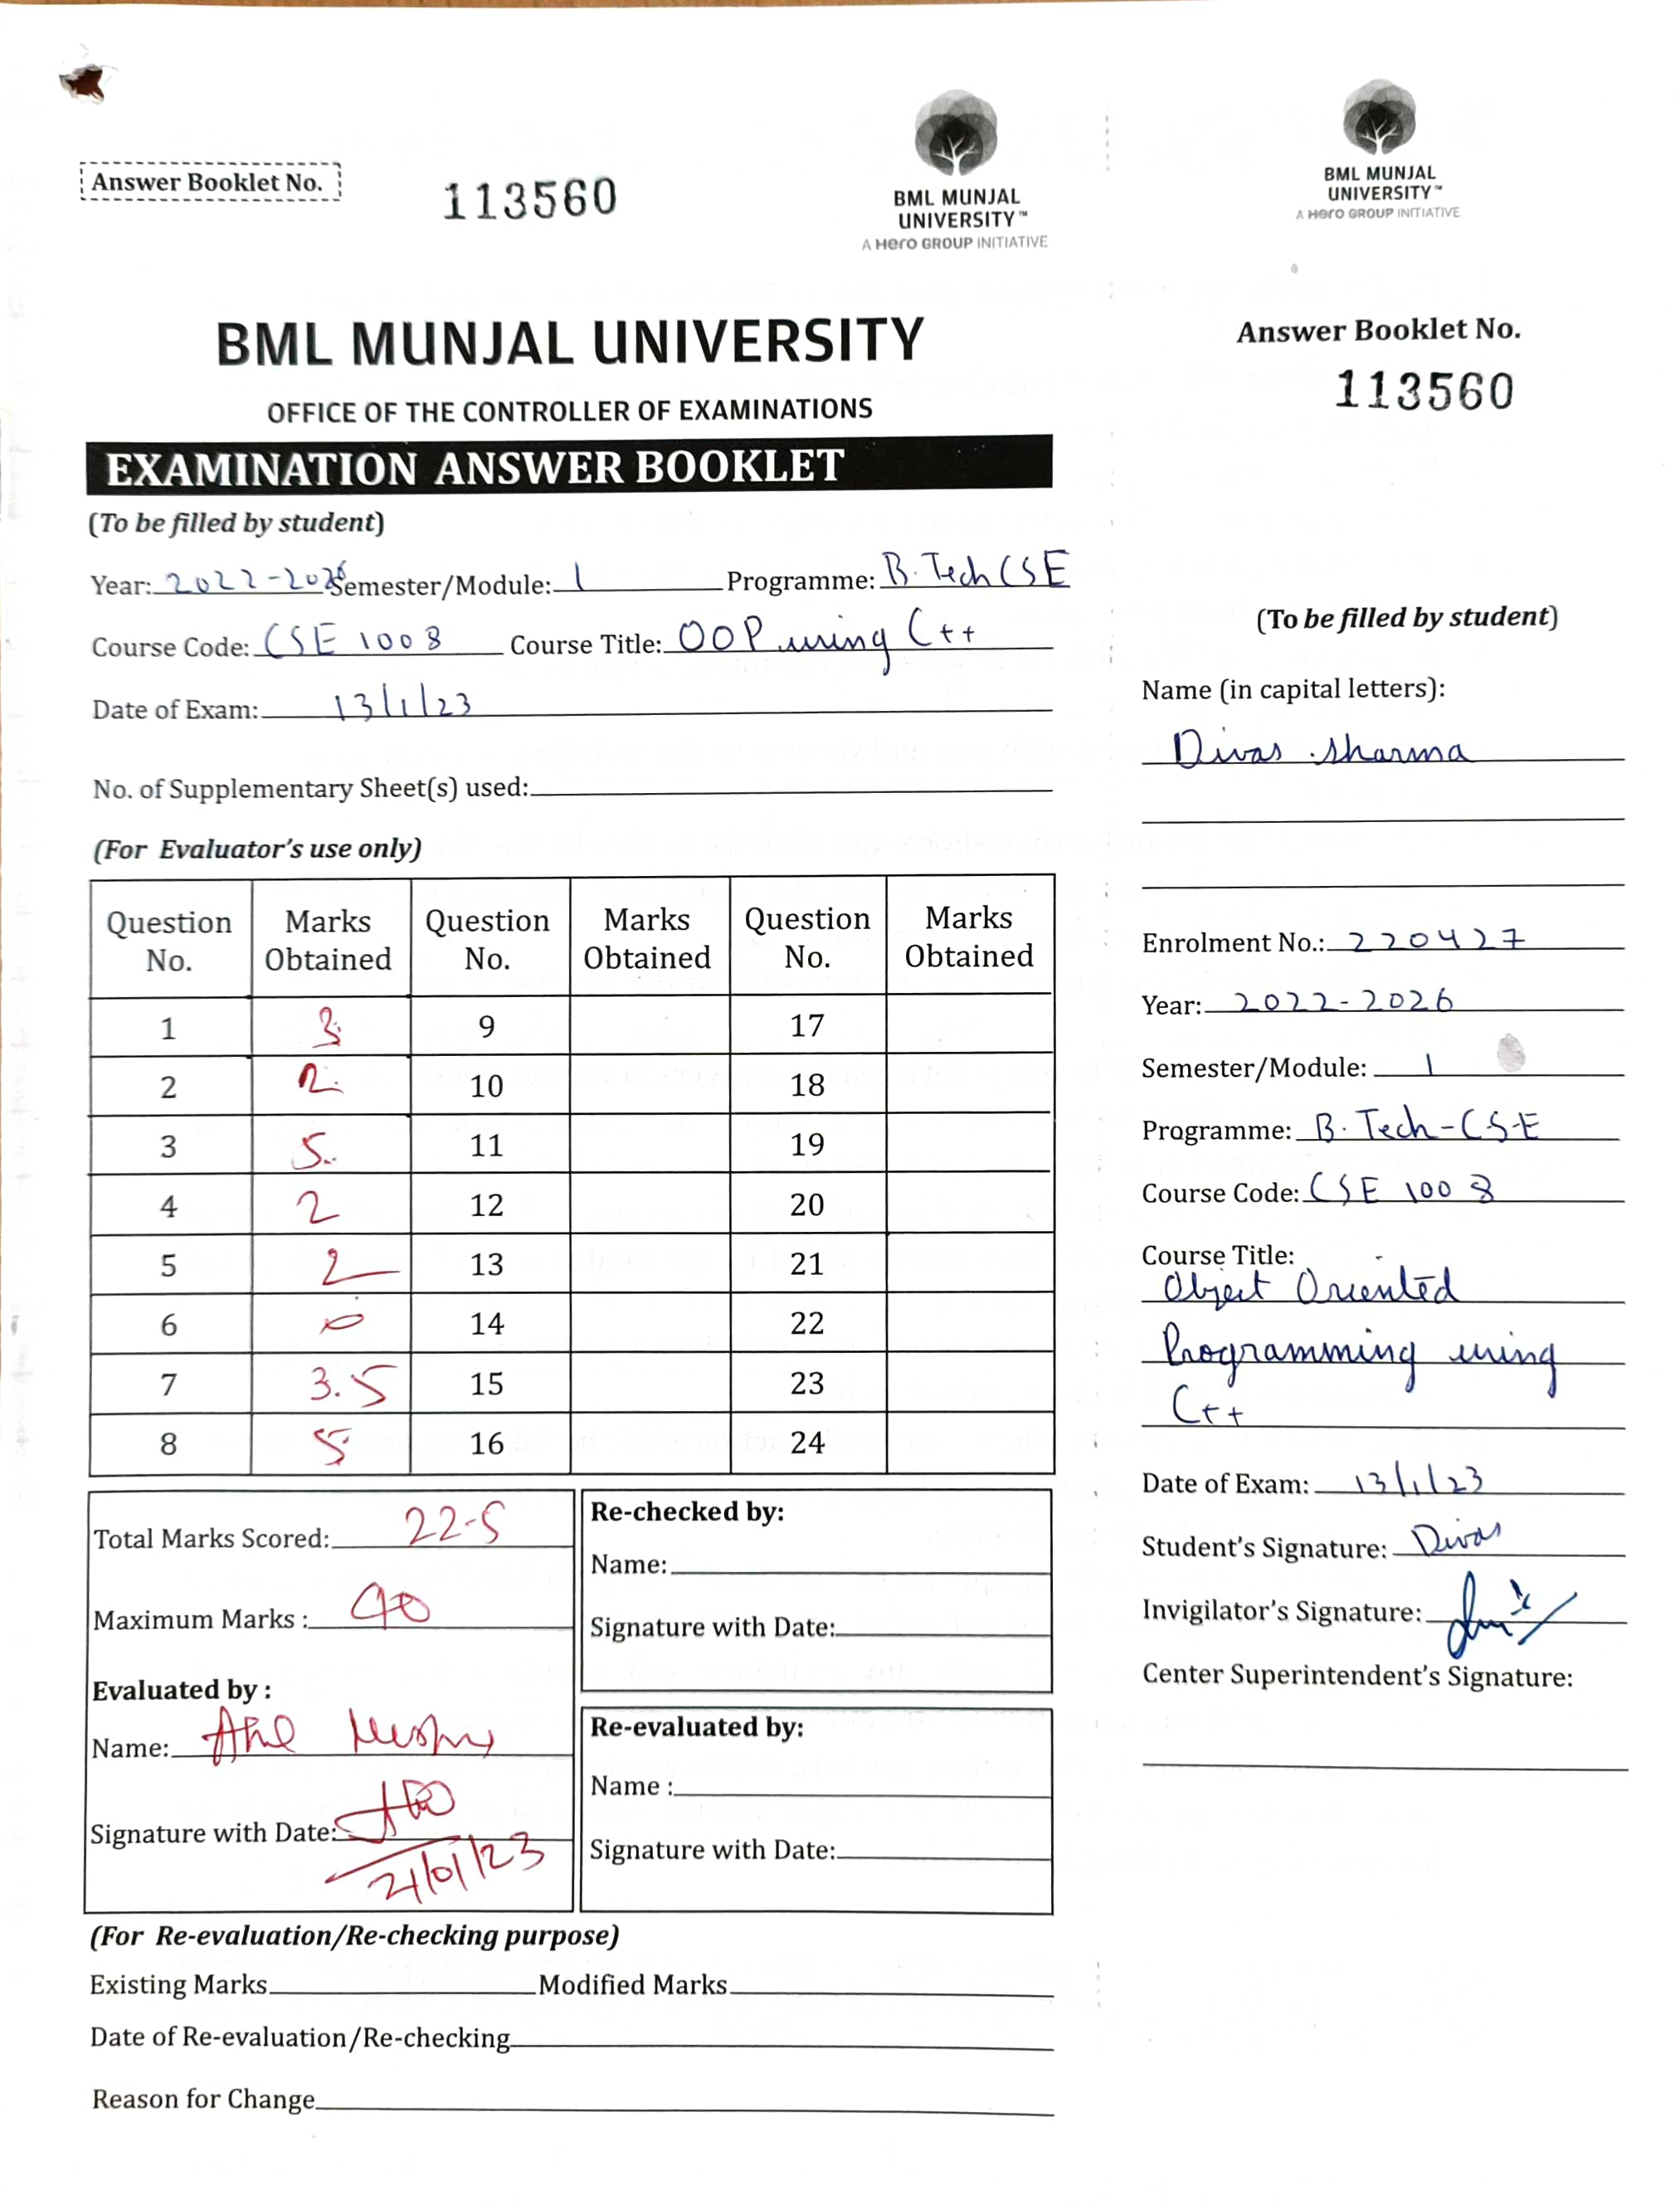 Answer Booklet No.
113560
BML MUNJAL
UNIVERSITY™
A Hero GROUP INITIATIVE
BML MUNJAL UNIVERSITY
OFFICE OF THE CONTROLLER OF EXAMINATIONS
EXAMINATION ANSWER BOOKLET
(To be filled by student)
Year: 2022-2026 Semester/Module: 1 Programme: B.Tech CSE
Course Code: CSE 1008 Course Title: OOP using C++
Date of Exam: 13/1/23
No. of Supplementary Sheet(s) used:
(For Evaluator's use only)
Question No. Marks Obtained Question No. Marks Obtained Question No. Marks Obtained
1 3 9 17
2 2 10 18
3 5 11 19
4 2 12 20
5 2 13 21
6 0 14 22
7 3.5 15 23
8 5 16 24
Total Marks Scored: 22-5
Maximum Marks : 40
Evaluated by :
Name:
Signature with Date: 21/01/23
Re-checked by:
Name:
Signature with Date:
Re-evaluated by:
Name :
Signature with Date:
(For Re-evaluation/Re-checking purpose)
Existing Marks Modified Marks
Date of Re-evaluation/Re-checking
Reason for Change
BML MUNJAL
UNIVERSITY™
A Hero GROUP INITIATIVE
Answer Booklet No.
113560
(To be filled by student)
Name (in capital letters):
Divas Sharma
Enrolment No.: 220427
Year: 2022-2026
Semester/Module: 1
Programme: B.Tech-CSE
Course Code: CSE 1008
Course Title:
Object Oriented
Programming using
C++
Date of Exam: 13/1/23
Student's Signature: Divas
Invigilator's Signature:
Center Superintendent's Signature: